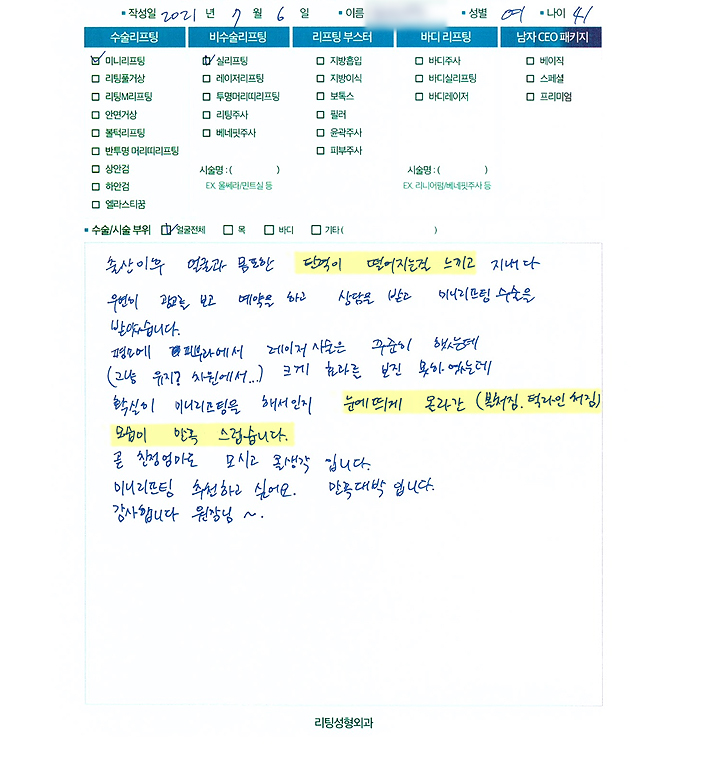 작성일 2021 년 7 월 6 일 이름 성별 여 나이 41
수술리프팅 비수술리프팅 리프팅 부스터 바디 리프팅 남자 CEO 패키지
미니리프팅 실리프팅 지방흡입 바디주사 베이직
리팅풀거상 레이저리프팅 지방이식 바디실리프팅 스페셜
리팅M리프팅 투명머리띠리프팅 보톡스 바디레이저 프리미엄
안면거상 리팅주사 필러
볼턱리프팅 베네핏주사 윤곽주사
반투명 머리띠리프팅 피부주사
상안검 시술명 : ( ) 시술명 : ( )
하안검 EX. 울쎄라/민트실 등 EX. 리니어펌/베네핏주사 등
엘라스티꿈
수술/시술 부위 얼굴전체 목 바디 기타 ( )
출산이후 얼굴과 몸또한 탄력이 떨어지는걸 느끼고 지내다
우연히 광고를 보고 예약을 하고 상담을 받고 미니리프팅 수술을
받았습니다.
평소에 피부과에서 레이저 시술은 꾸준히 했는데
(그냥 유지? 차원에서...) 크게 효과를 보진 못하였는데
확실히 미니리프팅을 해서인지 눈에띄게 올라간 (볼처짐. 턱라인 처짐)
모습이 만족 스럽습니다.
곧 친정엄마도 모시고 올생각 입니다.
미니리프팅 추천하고 싶어요. 만족대박 입니다.
감사합니다 원장님 ~.
리팅성형외과